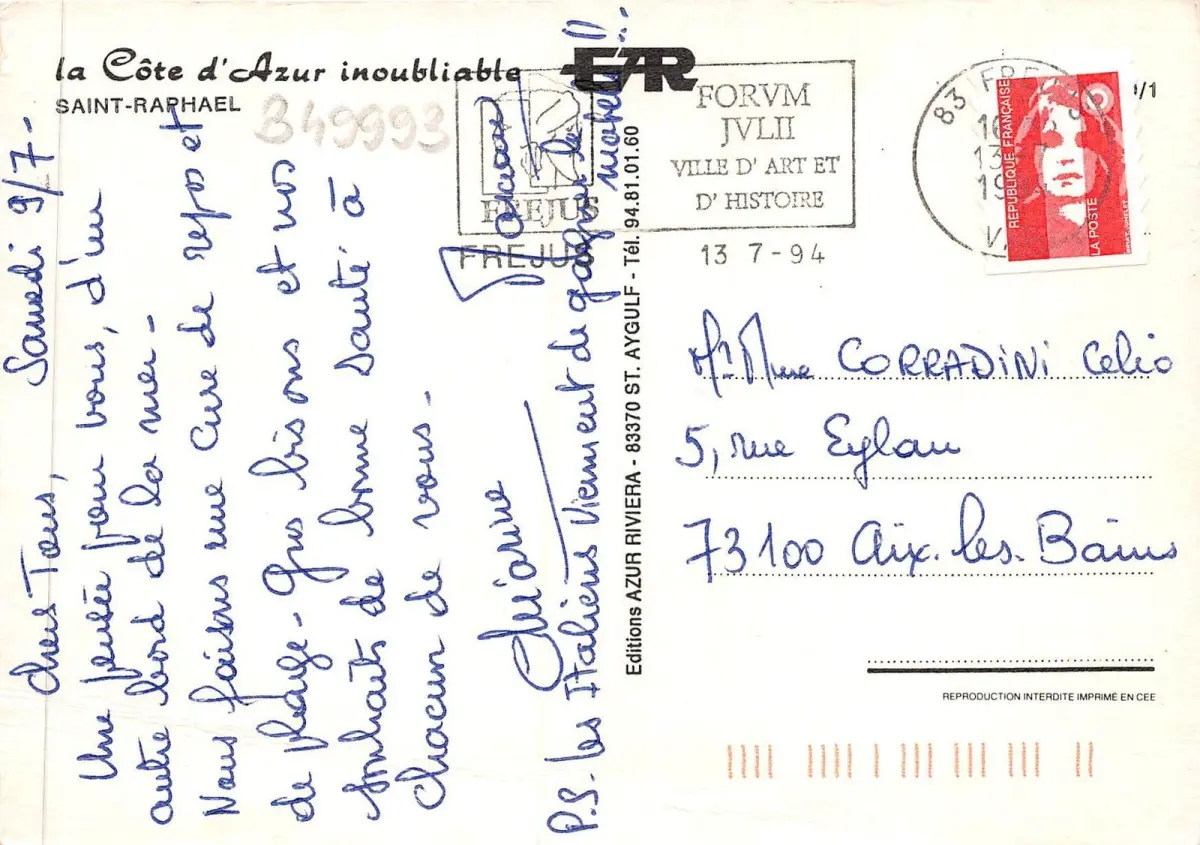 la Côte d'Azur inoubliable
SAINT-RAPHAEL
B49993
EAR
Samedi 9/7-
Chers Tous,
Une pensée pour vous, d'un
autre bord de la mer-
Nous faisons une cure de repos et
de plage- Gros bisous et nos
souhaits de bonne santé à
chacun de vous.
P.S- les Italiens viennent de gagner le match !!..
Editions AZUR RIVIERA - 83370 ST. AYGULF - Tél. 94.81.01.60
FREJUS
FREJUS
FORVM
JVLII
VILLE D'ART ET
D'HISTOIRE
13 7-94
83 FREJUS
VAR
REPUBLIQUE FRANÇAISE
LA POSTE
/1
Mr Mme CORRADINI Celio
5, rue Eylau
73100 Aix-les-Bains
REPRODUCTION INTERDITE IMPRIMÉ EN CEE